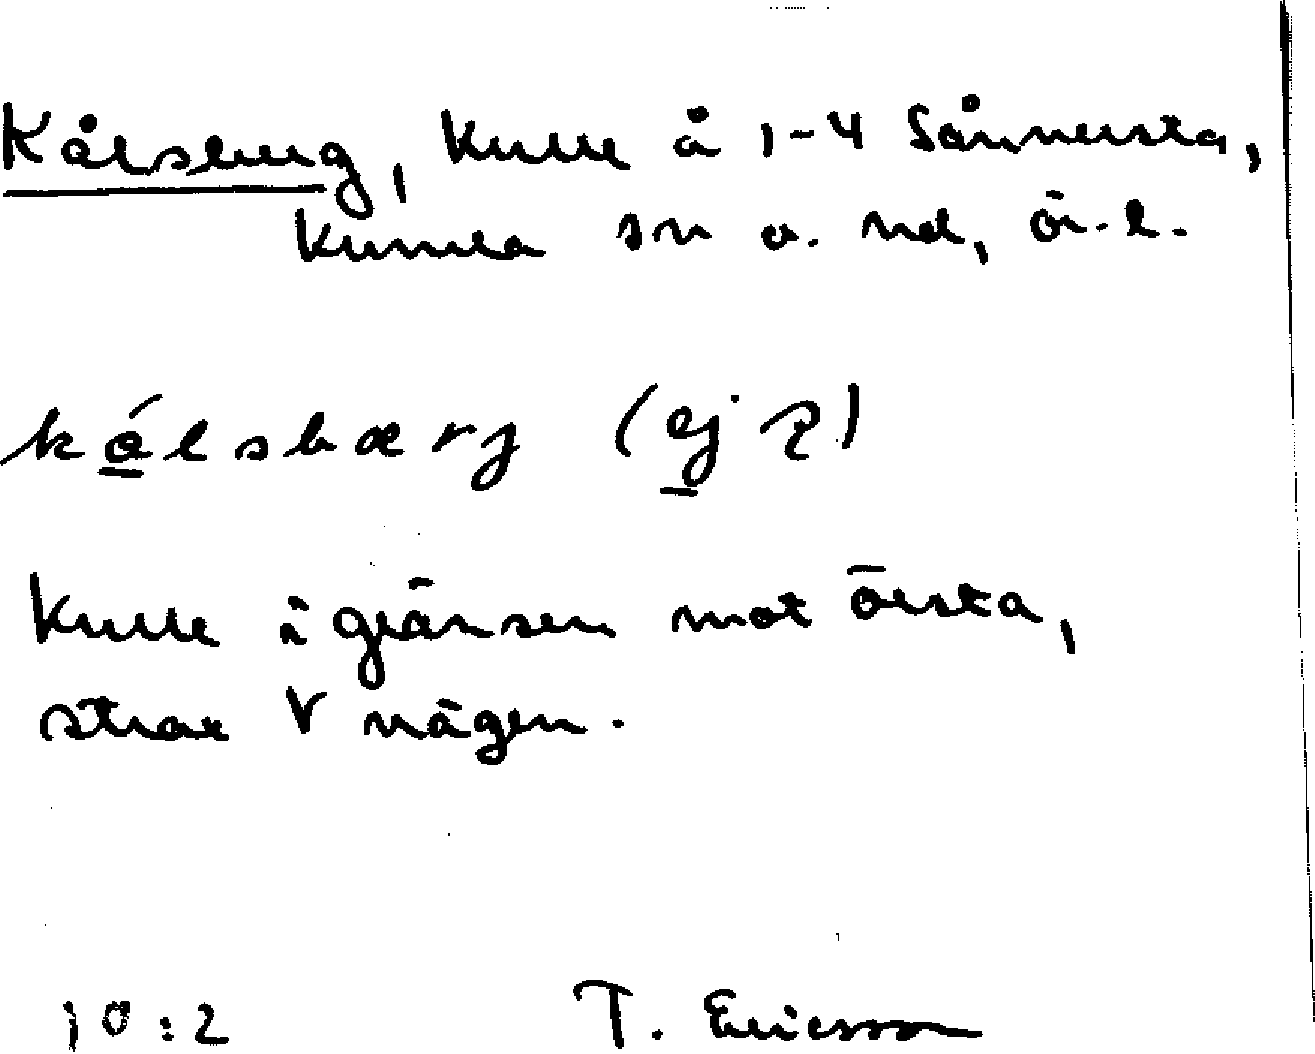 Kålsberg, kulle å 1-4 Sånnersta,
Kumla sn o. hd, ör. l.
kålsbærj (ej )
Kulle i gränsen mot Örsta,
strax V vägen.
10:2 T. Ericsson